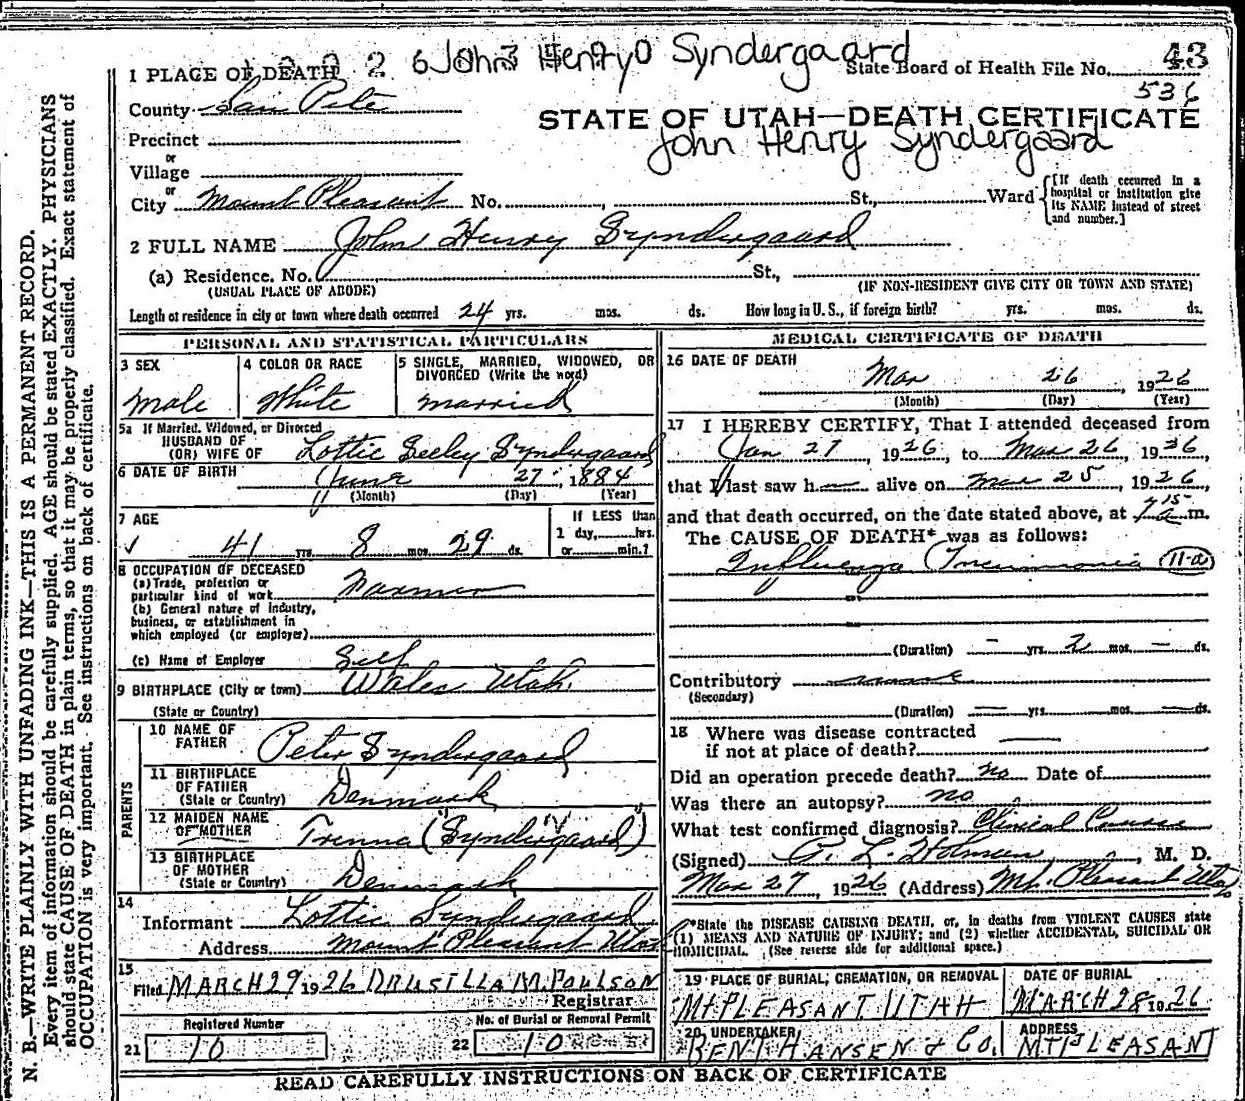 John Henry Syndergaard
1 PLACE OF DEATH
State Board of Health File No. 43
536
County San Pete
STATE OF UTAH—DEATH CERTIFICATE
John Henry Syndergaard
Precinct
or
Village
or
City Mount Pleasant No. , St., Ward
[If death occurred in a hospital or institution give its NAME instead of street and number.]
2 FULL NAME John Henry Syndergaard
(a) Residence. No. St.,
(USUAL PLACE OF ABODE) (IF NON-RESIDENT GIVE CITY OR TOWN AND STATE)
Length of residence in city or town where death occurred 24 yrs. mos. ds. How long in U. S., if foreign birth? yrs. mos. ds.
PERSONAL AND STATISTICAL PARTICULARS
3 SEX
Male
4 COLOR OR RACE
White
5 SINGLE, MARRIED, WIDOWED, OR DIVORCED (Write the word)
Married
5a If Married, Widowed, or Divorced
HUSBAND OF
(OR) WIFE OF Lottie Seeley Syndergaard
6 DATE OF BIRTH June 27, 1884
(Month) (Day) (Year)
7 AGE
41 yrs 8 mos. 29 ds.
If LESS than
1 day, hrs.
or min.?
8 OCCUPATION OF DECEASED
(a) Trade, profession or
particular kind of work Farmer
(b) General nature of industry,
business, or establishment in
which employed (or employer)
(c) Name of Employer Self
9 BIRTHPLACE (City or town) Wales Utah.
(State or Country)
PARENTS
10 NAME OF FATHER Peter Syndergaard
11 BIRTHPLACE OF FATHER
(State or Country) Denmark
12 MAIDEN NAME OF MOTHER Trenna ("Syndergaard")
13 BIRTHPLACE OF MOTHER
(State or Country) Denmark
14
Informant Lottie Syndergaard
Address Mount Pleasant Utah
15
Filed MARCH 29 1926 DRUSILLA M. POULSON
Registrar
Registered Number
21 10
No. of Burial or Removal Permit
22 10
MEDICAL CERTIFICATE OF DEATH
16 DATE OF DEATH
Mar 26, 1926
(Month) (Day) (Year)
17 I HEREBY CERTIFY, That I attended deceased from
Jan 27, 1926, to Mar 26, 1936,
that I last saw h alive on Mar 25, 1926,
and that death occurred, on the date stated above, at 7 15 a m.
The CAUSE OF DEATH* was as follows:
Influenza (Pneumonia 11-a
(Duration) – yrs. 2 mos. – ds.
Contributory
(Secondary)
(Duration) — yrs. mos. — ds.
18 Where was disease contracted
if not at place of death?
Did an operation precede death? No Date of
Was there an autopsy? no
What test confirmed diagnosis? Clinical Course
(Signed) P. L. Holman, M. D.
Mar 27, 1926 (Address) Mt. Pleasant Utah
*State the DISEASE CAUSING DEATH, or, in deaths from VIOLENT CAUSES state
(1) MEANS AND NATURE OF INJURY; and (2) whether ACCIDENTAL, SUICIDAL OR
HOMICIDAL. (See reverse side for additional space.)
19 PLACE OF BURIAL, CREMATION, OR REMOVAL
MT PLEASANT UTAH
DATE OF BURIAL
MARCH 28 1926
20 UNDERTAKER
BENT HANSEN & CO.
ADDRESS
MT PLEASANT
READ CAREFULLY INSTRUCTIONS ON BACK OF CERTIFICATE
N. B.—WRITE PLAINLY WITH UNFADING INK—THIS IS A PERMANENT RECORD.
Every item of information should be carefully supplied. AGE should be stated EXACTLY. PHYSICIANS
should state CAUSE OF DEATH in plain terms, so that it may be properly classified. Exact statement of
OCCUPATION is very important. See instructions on back of certificate.